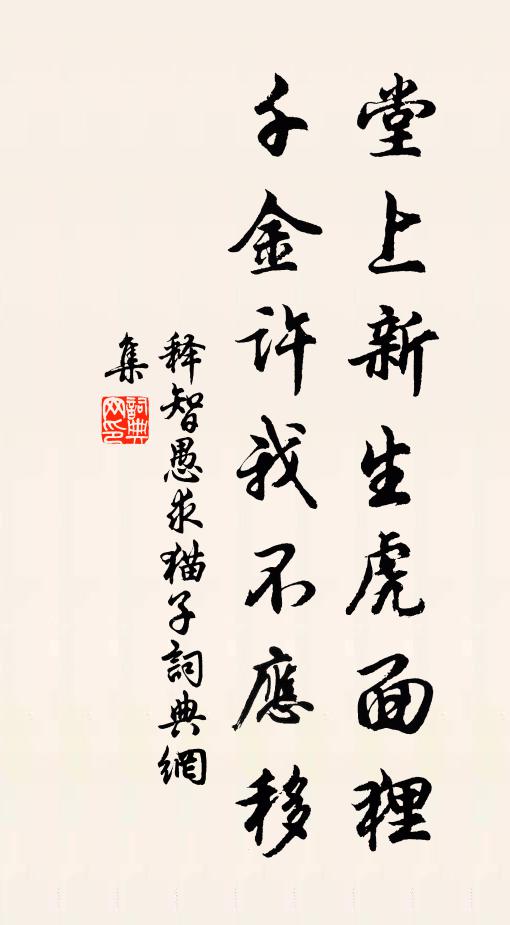 堂上新生虎面狸
千金許我不應移
释智愚求猫子詞典網
集
詞典
网印